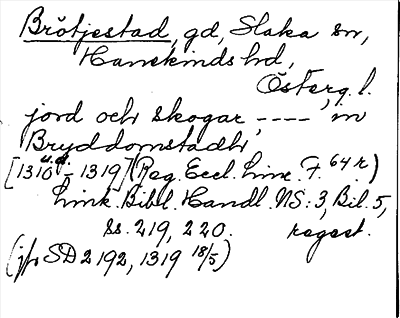 Brötjestad, gd, Slaka sn,
Hanekinds hd,
Österg. l.
jord och skogar, ----, in
Bryddomstadhr
u.d.
[1310 - 1319] (Reg. Eccl. Linc. F. 64 r)
Link. Bibl. Handl. NS: 3, Bil. 5,
ss. 219, 220. regest.
(jfr SD 2192, 1319 18/5)